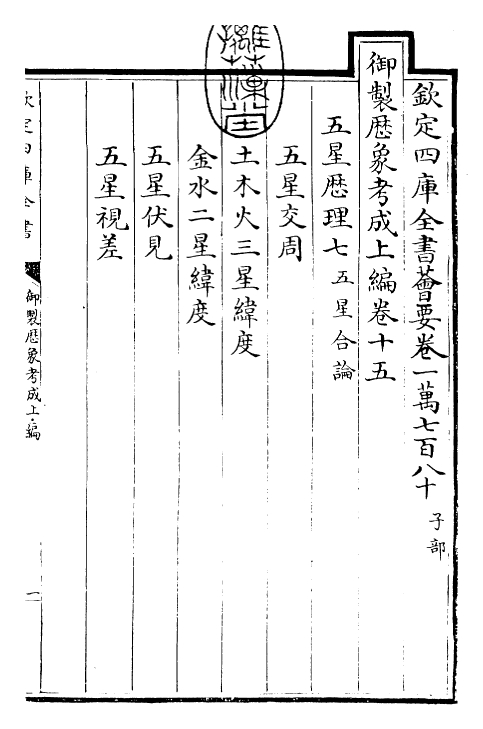 欽定四庫全書薈要卷一萬七百八十 子部
御製厯象考成上編卷十五
五星厯理七 五星合論
五星交周
土木火三星緯度
金水二星緯度
五星伏見
五星視差
欽定四庫全書
御製厯象考成上編
一